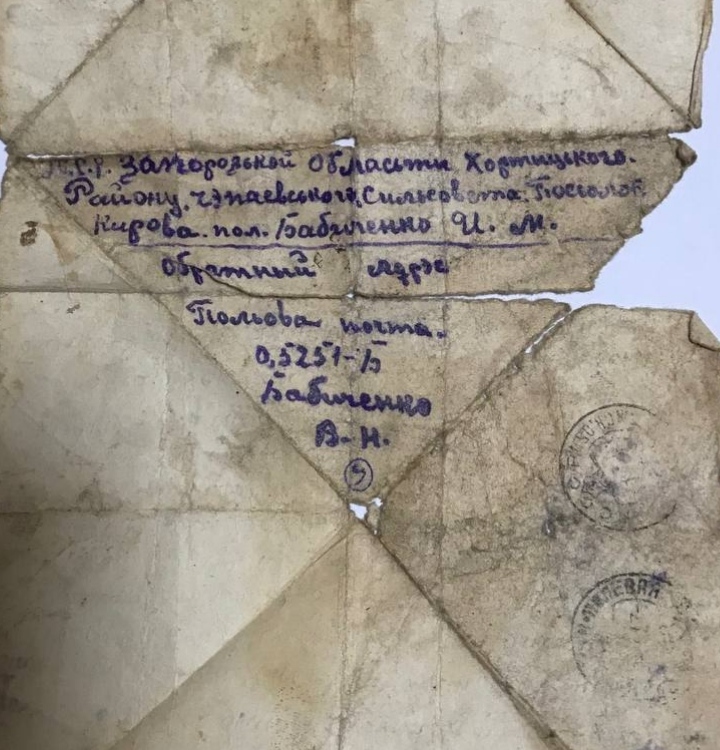 С.С.Р. Запорозькой Области Хортицького.
Району. Чэпаевського, Сильсовета. Посюлок
Кирова. пол. Бабиченко И. М.
Обратный Адрэс
Польова почта.
0,5251-Б
Бабиченко
В. Н.